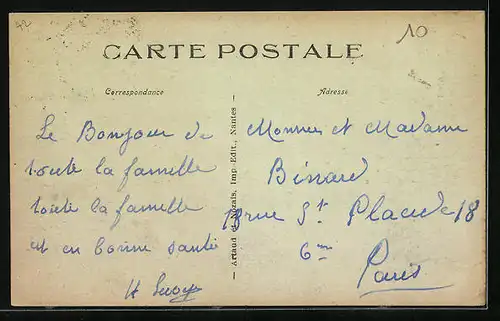 42
10
CARTE POSTALE
Correspondance
Adresse
Le Bonjour de
toute la famille
toute la famille
est en bonne santé
Artaud et Nozais, Imp. Edit., Nantes
Monsieur et Madame
Binard
18 rue St Placide 18
6me
Paris